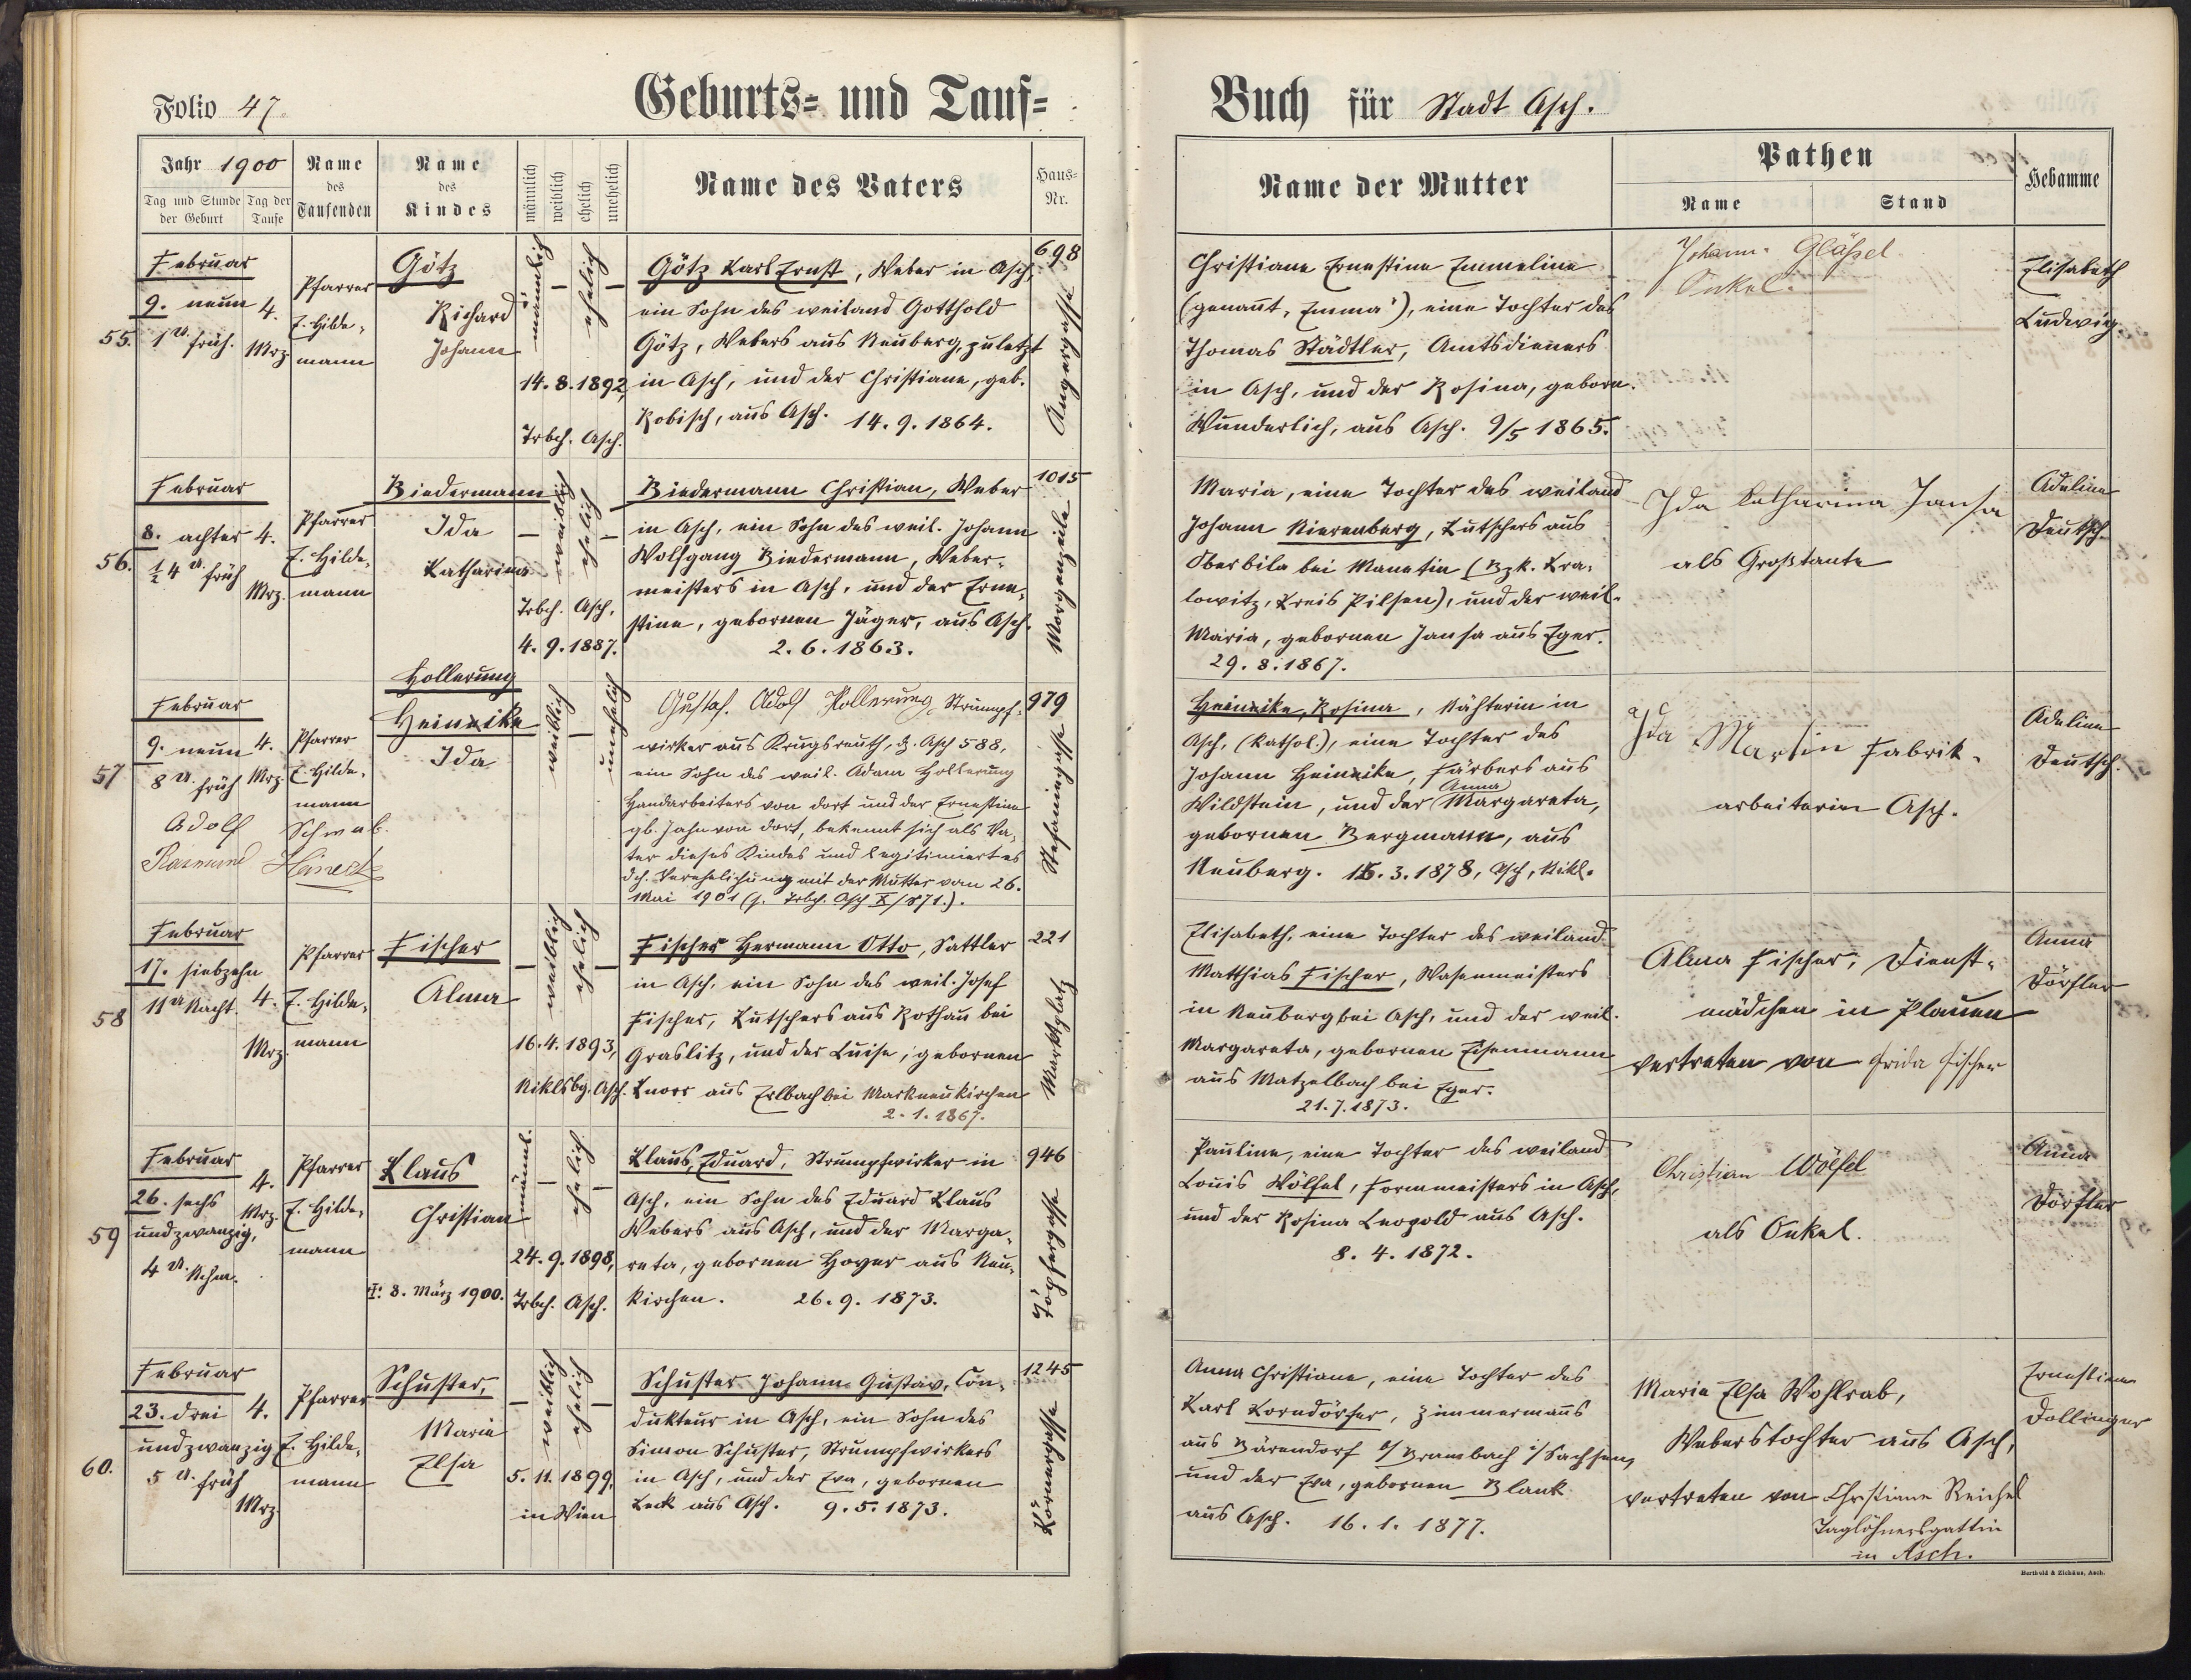 Folio 47.
Geburts= und Tauf=
Buch für Stadt Asch.
Jahr 1900
Tag und Stunde der Geburt
Tag der Taufe
Name des Taufenden
Name des Kindes
männlich
weiblich
ehelich
unehelich
Name des Vaters
Haus= Nr.
Name der Mutter
Pathen
Name
Stand
Hebamme
55.
Februar
9. neun
1 U. früh.
4.
Mrz.
Pfarrer
E. Hilde=
mann
Götz
Richard
Johann
männlich
–
ehelich
–
14. 8. 1892,
Trbch. Asch.
Götz Karl Ernst, Weber in Asch,
ein Sohn des weiland Gotthold
Götz, Webers aus Neuberg, zuletzt
in Asch, und der Christiane, geb.
Robisch, aus Asch. 14. 9. 1864.
698
Angergasse
Christiane Ernestine Emmeline
(genannt „Emma"), eine Tochter des
Thomas Städtler, Amtsdieners
in Asch, und der Rosina, geborn.
Wunderlich, aus Asch. 9/5 1865.
Johann Gläßel
Onkel.
Elisabeth
Ludwig.
56.
Februar
8. achter
½ 4 U. früh
4.
Mrz.
Pfarrer
E. Hilde=
mann
Biedermann
Ida
Katharina
–
weiblich
ehelich
–
Trbch. Asch,
4. 9. 1887.
Biedermann Christian, Weber
in Asch, ein Sohn des weil. Johann
Wolfgang Biedermann, Weber=
meisters in Asch, und der Erne=
stine, gebornen Jäger, aus Asch.
2. 6. 1863.
1015
Morgenzeile
Maria, eine Tochter des weiland
Johann Nierenberg, Kutschers aus
Oberbila bei Manetin (Bzk. Kra=
lowitz, Kreis Pilsen), und der weil.
Maria, gebornen Jansa aus Eger.
29. 8. 1867.
Ida Katharina Jansa
als Großtante
Adeline
Deutsch.
57
Februar
9. neun
8 U. früh
4.
Mrz.
Pfarrer
E. Hilde=
mann
Adolf Schwab.
Heinert
Hollerung
Heinike
Ida
weiblich
–
unehelich
Gustaf. Adolf Hollerung, Strumpf=
wirker aus Krugsreuth, z. Asch 588,
ein Sohn des weil. Adam Hollerung
Handarbeiters von dort und der Ernestine
gb. Jahn von dort, bekennt sich als Va=
ter dieses Kindes und legitimiert es
dch. Verehelichung mit der Mutter vom 26.
Mai 1901 (s. Trbch. Asch X/871.).
979
Stefaniengasse
Heinike, Rosina, Nähterin in
Asch, (kathol.), eine Tochter des
Johann Heinike, Färbers aus
Wildstein, und der Anna Margareta,
gebornen Bergmann, aus
Neuberg. 16. 3. 1878, Asch, Nikl.
Ida Martin Fabrik=
arbeiterin Asch.
Adeline
Deutsch.
58
Februar
17. siebzehn
11 U. Nacht.
4.
Mrz.
Pfarrer
E. Hilde=
mann
Fischer
Alma
–
weiblich
ehelich
–
16. 4. 1893,
Niklsbg. Asch.
Fischer Hermann Otto, Sattler
in Asch, ein Sohn des weil. Josef
Fischer, Kutschers aus Rothau bei
Graslitz, und der Luise, gebornen
Knorr aus Erlbach bei Markneukirchen
2. 1. 1867.
221
Marktplatz
Elisabeth, eine Tochter des weiland
Matthias Fischer, Wasenmeisters
in Neuberg bei Asch, und der weil.
Margareta, gebornen Eisenmann
aus Matzelbach bei Eger.
21. 7. 1873.
Alma Fischer, Dienst=
mädchen in Plauen
vertreten von Frida Fischer
Anna
Dörfler
59
Februar
26. sechs
undzwanzig,
4 U. Nchm.
4.
Mrz.
Pfarrer
E. Hilde=
mann
Klaus
Christian
†: 8. März 1900.
männl.
–
ehelich
–
24. 9. 1898,
Trbch. Asch.
Klaus, Eduard, Strumpfwirker in
Asch, ein Sohn des Eduard Klaus
Webers aus Asch, und der Marga=
reta, gebornen Hoyer aus Neu=
kirchen. 26. 9. 1873.
946
Töpfergasse
Pauline, eine Tochter des weiland
Louis Wölfel, Formmeisters in Asch,
und der Rosina Leopold aus Asch.
8. 4. 1872.
Christian Wölfel
als Onkel.
Anna
Dörfler
60.
Februar
23. drei
undzwanzig
5 U. früh
4.
Mrz.
Pfarrer
E. Hilde=
mann
Schuster,
Maria
Elsa
–
weiblich
ehelich
–
5. 11. 1899,
in Wien
Schuster Johann Gustav, Con=
dukteur in Asch, ein Sohn des
Simon Schuster, Strumpfwirkers
in Asch, und der Eva, gebornen
Keck aus Asch. 9. 5. 1873.
1245
Körnergasse
Anna Christiane, eine Tochter des
Karl Korndörfer, Zimmermanns
aus Bärendorf b/ Brambach i/ Sachsen,
und der Eva, gebornen Blank
aus Asch. 16. 1. 1877.
Maria Elsa Wohlrab,
Weberstochter aus Asch,
vertreten von Christiane Reichel
Taglöhnersgattin
in Asch.
Ernestine
Dollinger
Berthold & Zichäus, Asch.